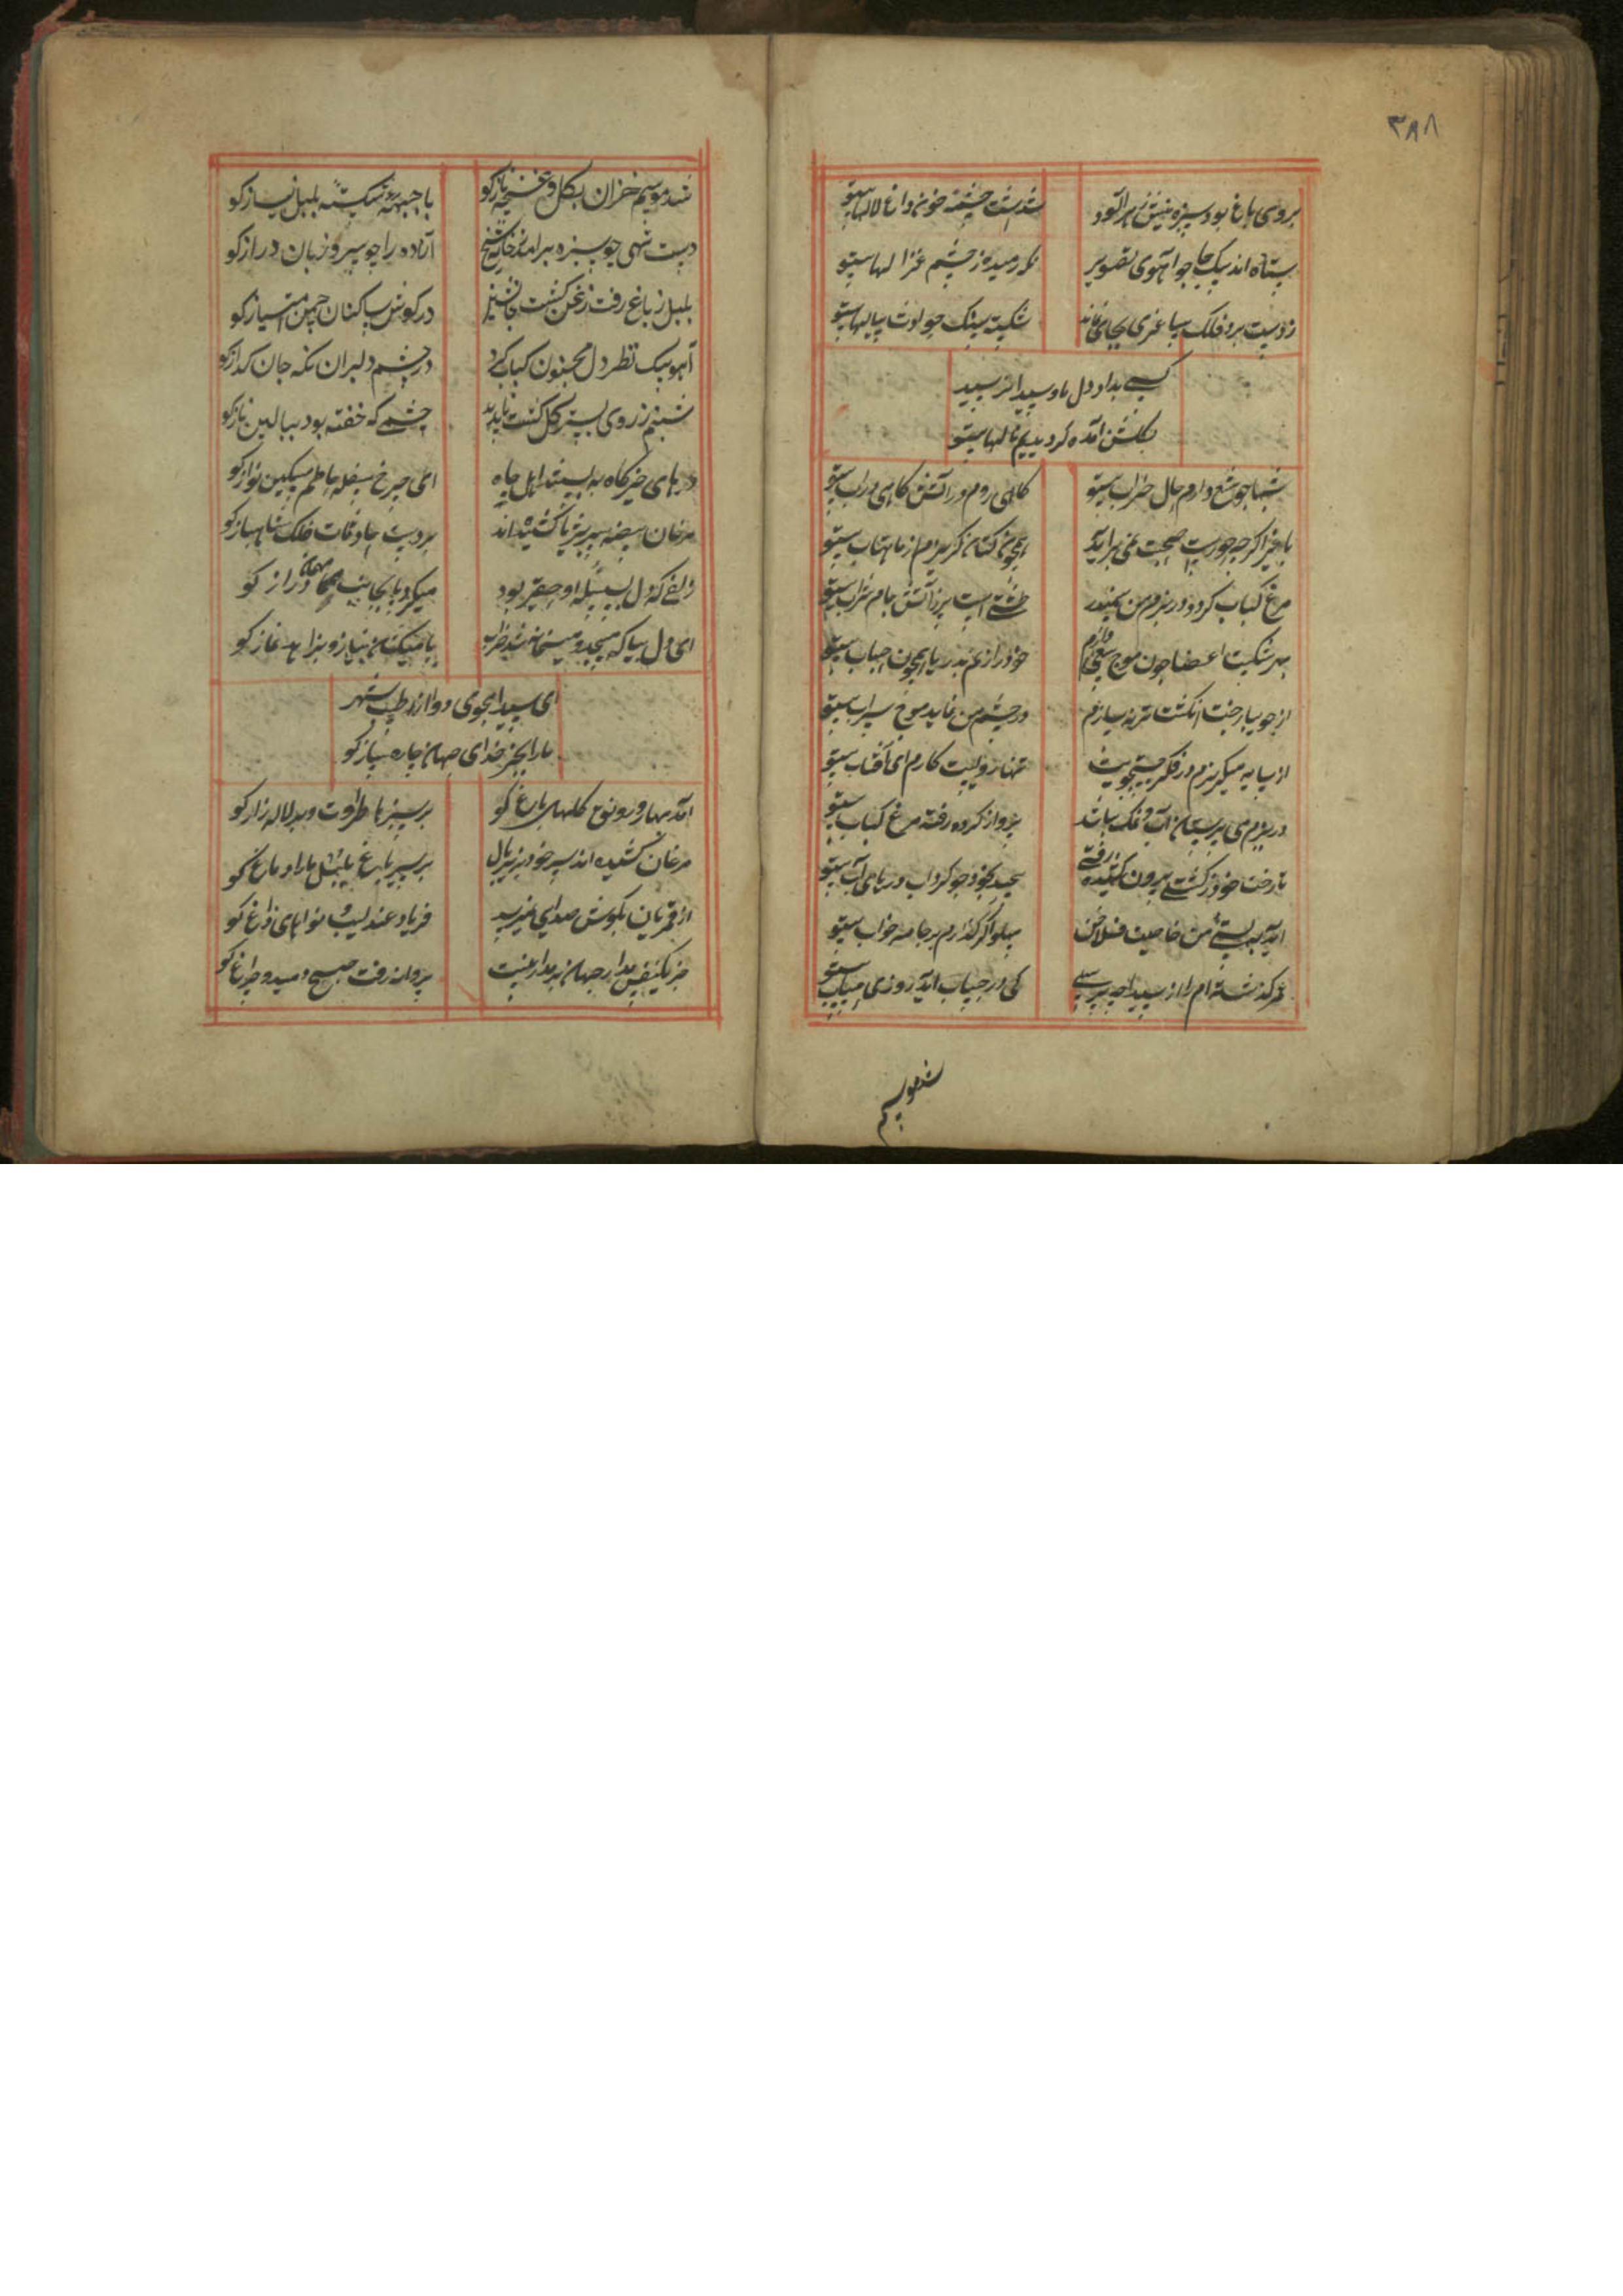 ۳۸۸
بروی باغ بود سبزه نیش زهرآلود
شدست چشمه خون داغ لالها بیتو
ستاده اند بیک جا چو آهوی تصویر
رمیده ز چشم غزالها بیتو
ز دست برد فلک ساغری بجای نماند
شکست سنک حوادث پیالها بیتو
کسی بداد دل ما و سیدا نرسید
بکلشن آمده کردیم نالها بیتو
شبها چو شمع دارم حال خراب بیتو
کاهی روم در آتش کاهی در آب بیتو
با غیر اکرچه صحبت نمی برآید
همچون کتان کریزم از ماهتاب بیتو
مرغ کباب کردد در بزم من سمندر
طشتی است پر ز آتش جام شراب بیتو
بهر شکست اعضا چون موج
خود را زنم بدریا همچون حباب بیتو
از جویبار رخت انکشت
در چشم من نماید موج سراب بیتو
از سایه میکریزم در فکر جستجویت
تنها رویست کارم ای آفتاب بیتو
در بزم می پرستان آب و نمک نباشد
پرواز کرده رفته مرغ کباب بیتو
تا رخت خود ز کشتی بیرون کشیده رفتی
پیچد بخود چو کرداب دریای آب بیتو
آید به بستر من خاصیت فلاخن
پهلو اکر کذارم بر جامه خواب بیتو
عمر کذشته ام را از سیدا چه پرسی
کی در حساب آید روزی بیتو
شد موسم
شد موسم خزان بکل و غنچه ناز کو
با جبهه شکسته بلبل نیاز کو
دست تهی چو سبزه برآمد ز خاک
آزاده را چو سرو زبان دراز کو
بلبل ز باغ رفت زغن کشت جانشین
در کوش ساکنان چمن امتیاز کو
آهو بیک نظر دل مجنون کباب کرد
در چشم دلبران نکه جان کداز کو
شبنم ز روی بستر کل کشت ناپدید
چشمی که خفته بود ببالین ناز کو
درهای خیرکاه به بستند اهل جاه
ای چرخ سفله حاطم مسکین نواز کو
مرغان بیضه سر بزیر پا کشیده اند
بر دست حادثات فلک شاهباز کو
زلفی که دل بسلسله او مقید بود
میکرد با دراز کو
ای دل بیا که مسجد و میخانه شد خراب
با میکشان نیاز و بزاهد نماز کو
ای سیدا مجوی دوا از طبیب شهر
ما را بجز خدای جهان چاره ساز کو
آمد بهار و رونق کلهای باغ کو
بر سبزها طراوت و بر لاله زار کو
مرغان کشیده اند سر خود بزیر بال
بر سیر باغ بلبل ما را دماغ کو
از قمریان بکوش صدایی نمیرسد
فریاد عندلیب و نواهای زاغ کو
جز یکنفس مدار جهان بر مدار نیست
پروانه رفت صبح دمید و چراغ کو